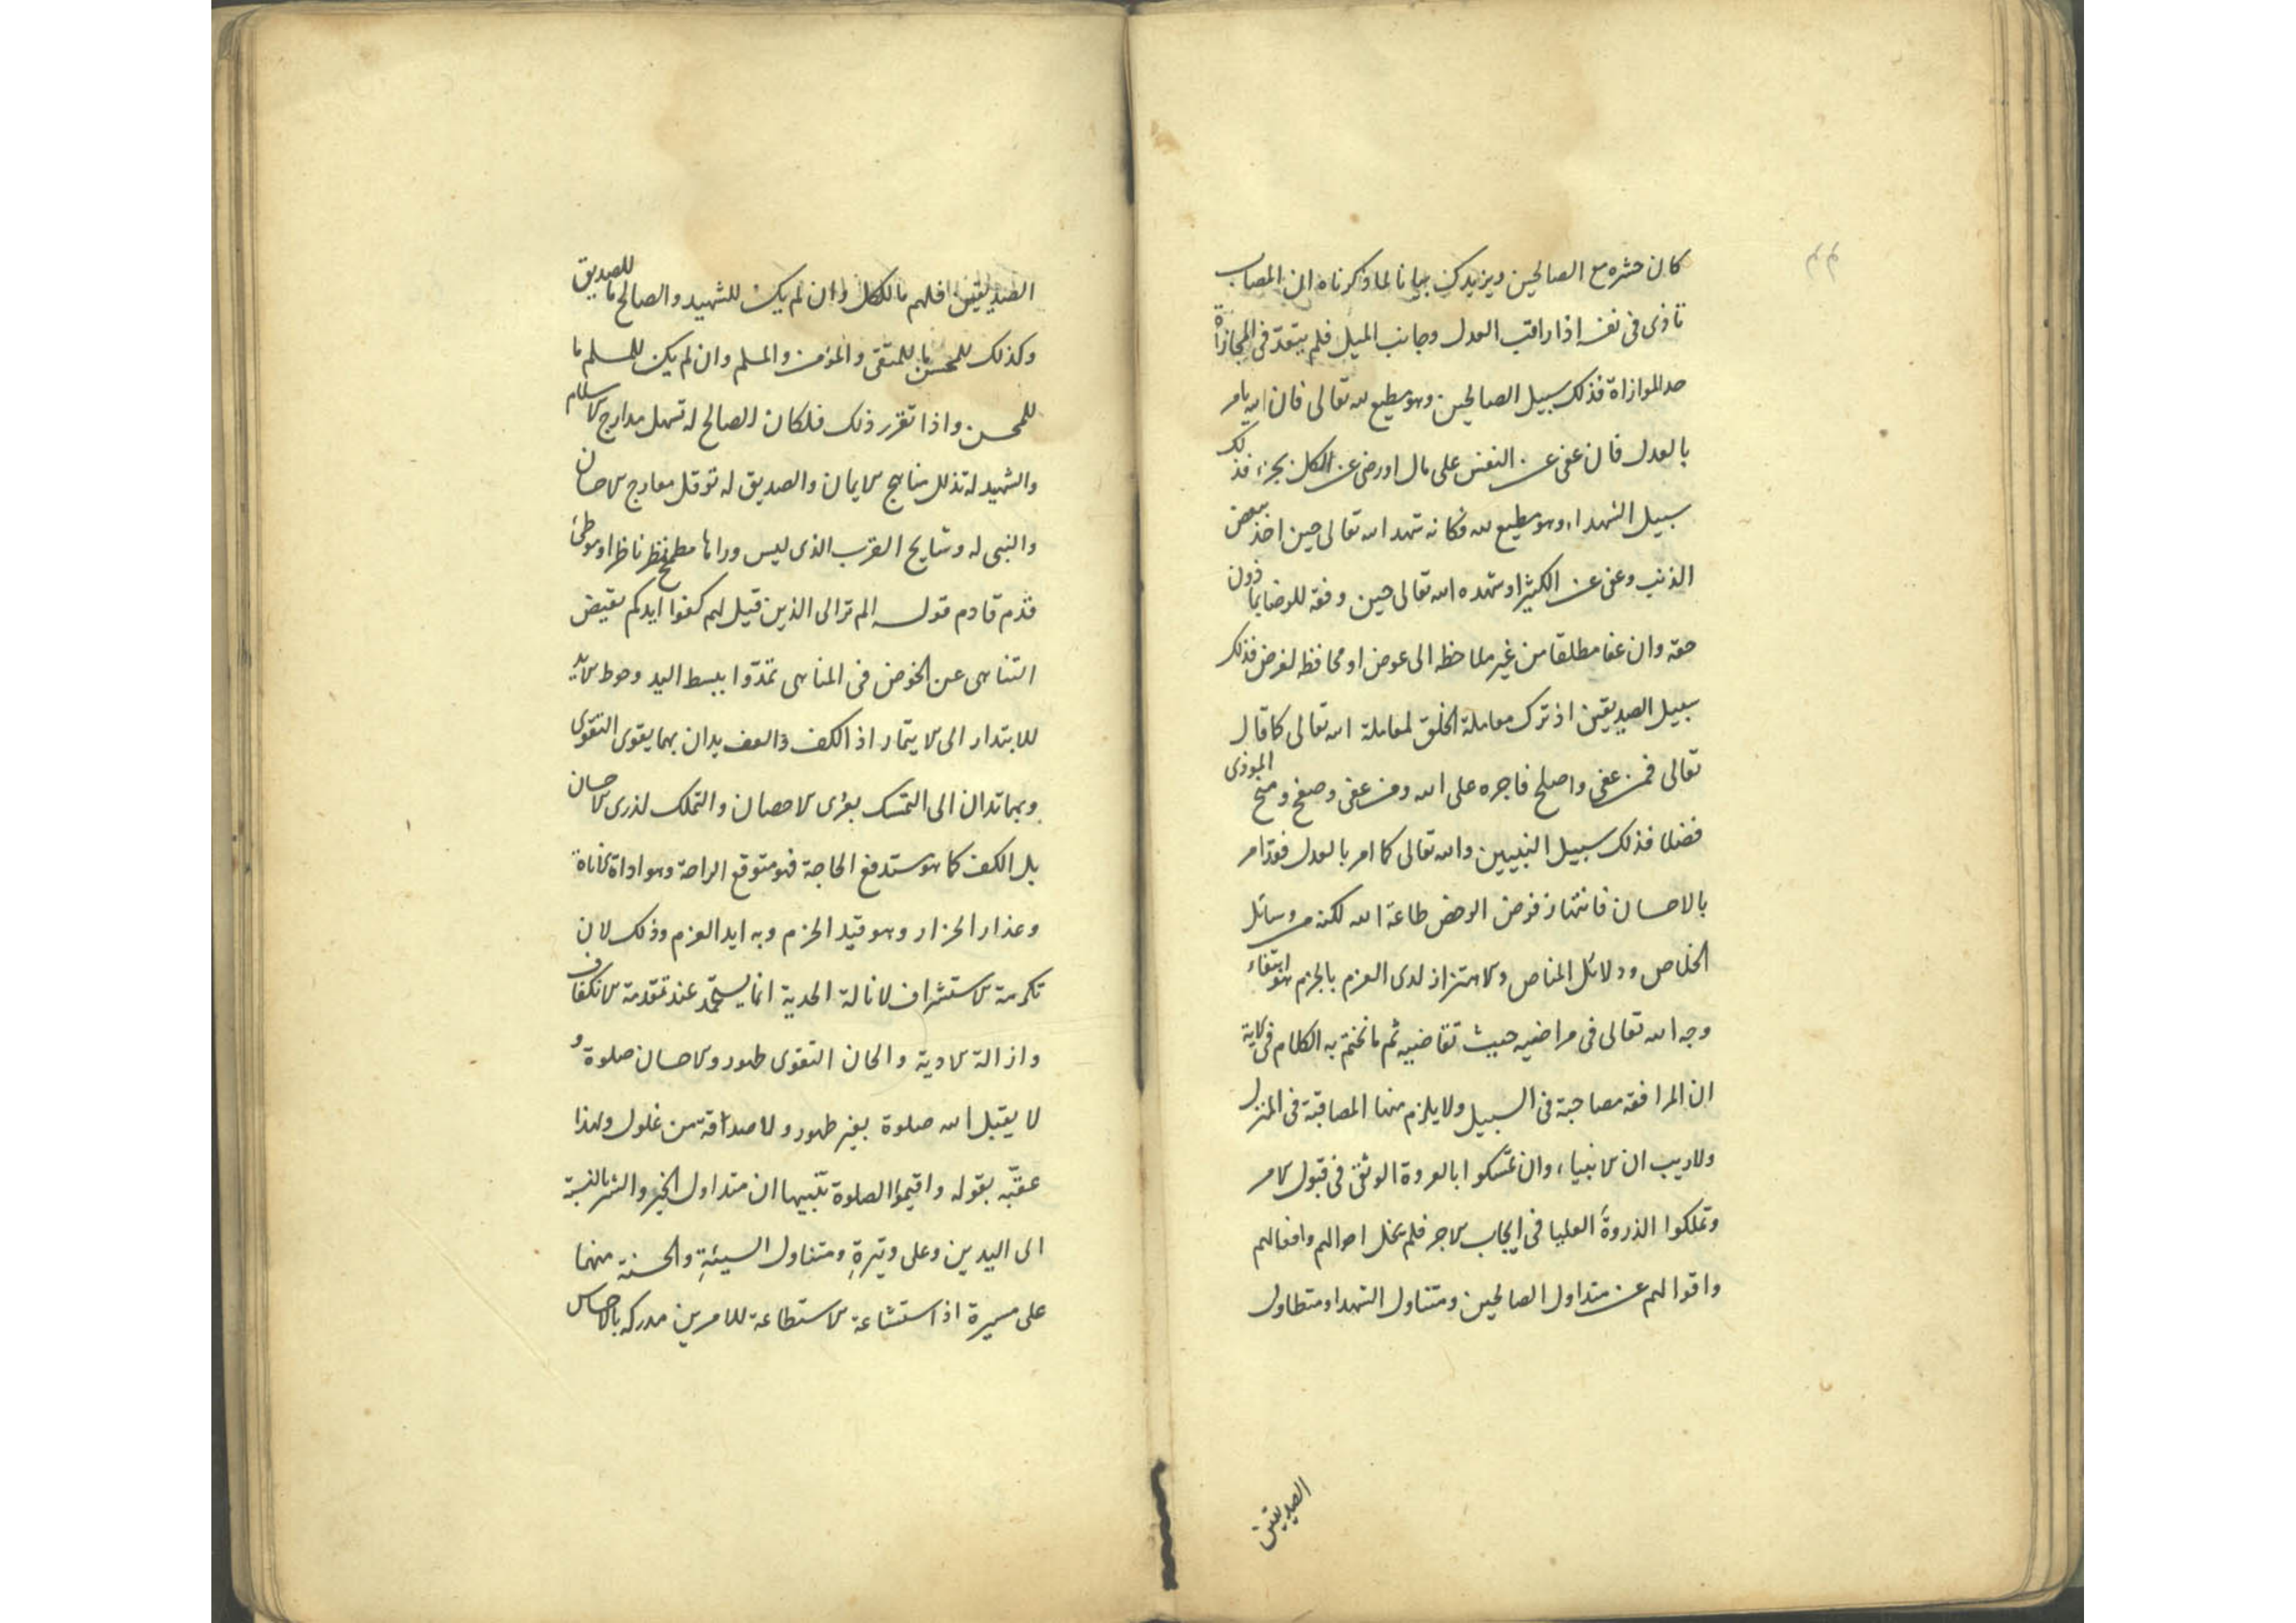 كان حشره مع الصالحين ويزيدك بيانا لما ذكرناه ان المصاب
تأذى فى نفسه اذا راقب العدل وجانب الميل فلم يتعد فى المجازاة
حد الموازاة فذلك سبيل الصالحين وهو مطيع لله تعالى فان الله يامر
بالعدل فان عفى عن النفس على مال او رضى عن الكل بجزء فذلك
سبيل الشهداء وهو مطيع لله فكانه شهد الله تعالى حين اخذ ببعض
الذنب وعفى عن الكثير او شهده الله تعالى حين وفقه للرضا بما دون
حقه وان عفا مطلقا من غير ملاحظه الى عوض او محافظه لغرض فذلك
سبيل الصديقين اذ ترك معاملة الخلق لمعاملة الله تعالى كما قال
تعالى فمن عفى واصلح فاجره على الله ومن عفى وصفح ومنح الموذى
فضلا فذلك سبيل النبيين والله تعالى كما امر بالعدل فقد امر
بالاحسان فانتهاز فرض طاعة الله لكنه من وسائل
الخلاص ودلائل المناص والاهتزاز لدى العزم بالجزم هو ابتغاء
وجه الله تعالى فى مراضيه حيث تقاضيه ثم ما نختم به الكلام فى الاية
ان المرافقه مصاحبة فى السبيل ولا يلزم منها المصاقبة فى المنزل
ولا ريب ان الانبياء وان تمسكوا بالعروة الوثقى فى قبول الامر
وتملكوا الذروة العليا فى ايجاب الاجر فلم يخل احوالهم وافعالهم
واقوالهم عن متداول الصالحين ومتناول الشهدا ومتطاول
الصديقين
الصديقين فلهم ما للكل وان لم يكن للشهيد والصالح ما للصديق
وكذلك للمحسن ما للمتقى والمؤمن والمسلم وان لم يكن للمسلم ما
للمحسن واذا تقرر ذلك فلكان الصالح له تسهل مدارج الاسلام
والشهيد له تذلل مناهج الايمان والصديق له توقل معارج الاحسان
والنبى له وشايج القرب الذى ليس وراها مطمح نظر ناظر او موطئ
قدم قادم قوله الم تر الى الذين قيل لهم كفوا ايدكم نقيض
التناهى عن الخوض فى المناهى تمدوا ببسط اليد وحوط الايد
للابتدار الى الايتمار اذ الكف والعف يدان بهما يقوى التقوى
وبهما تدان الى التمسك بعرى الاحصان والتملك لذرى الاحسان
بل الكف كما هو مستدفع الحاجة فهو متوقع الراحة وهو اداة الاناة
وعذار الحزار وهو قيد الحزم وبه ايد العزم وذلك لان
تكرمة الاستشراف لانالة الهدية انما يستمد عند تقدمة الانكفاف
وازالة الاذية والحان التقوى طهور والاحسان صلوة و
لا يقبل الله صلوة بغير طهور ولا صداقة من غلول ولهذا
عقبه بقوله واقيموا الصلوة تنبيها ان متداول الخير والشر بالنسبة
الى اليدين وعلى وتيرة ومتناول السيئة والحسنة منهما
على مسيرة اذ استشاعة الاستطاعة للامرين مدركه بالاحساس